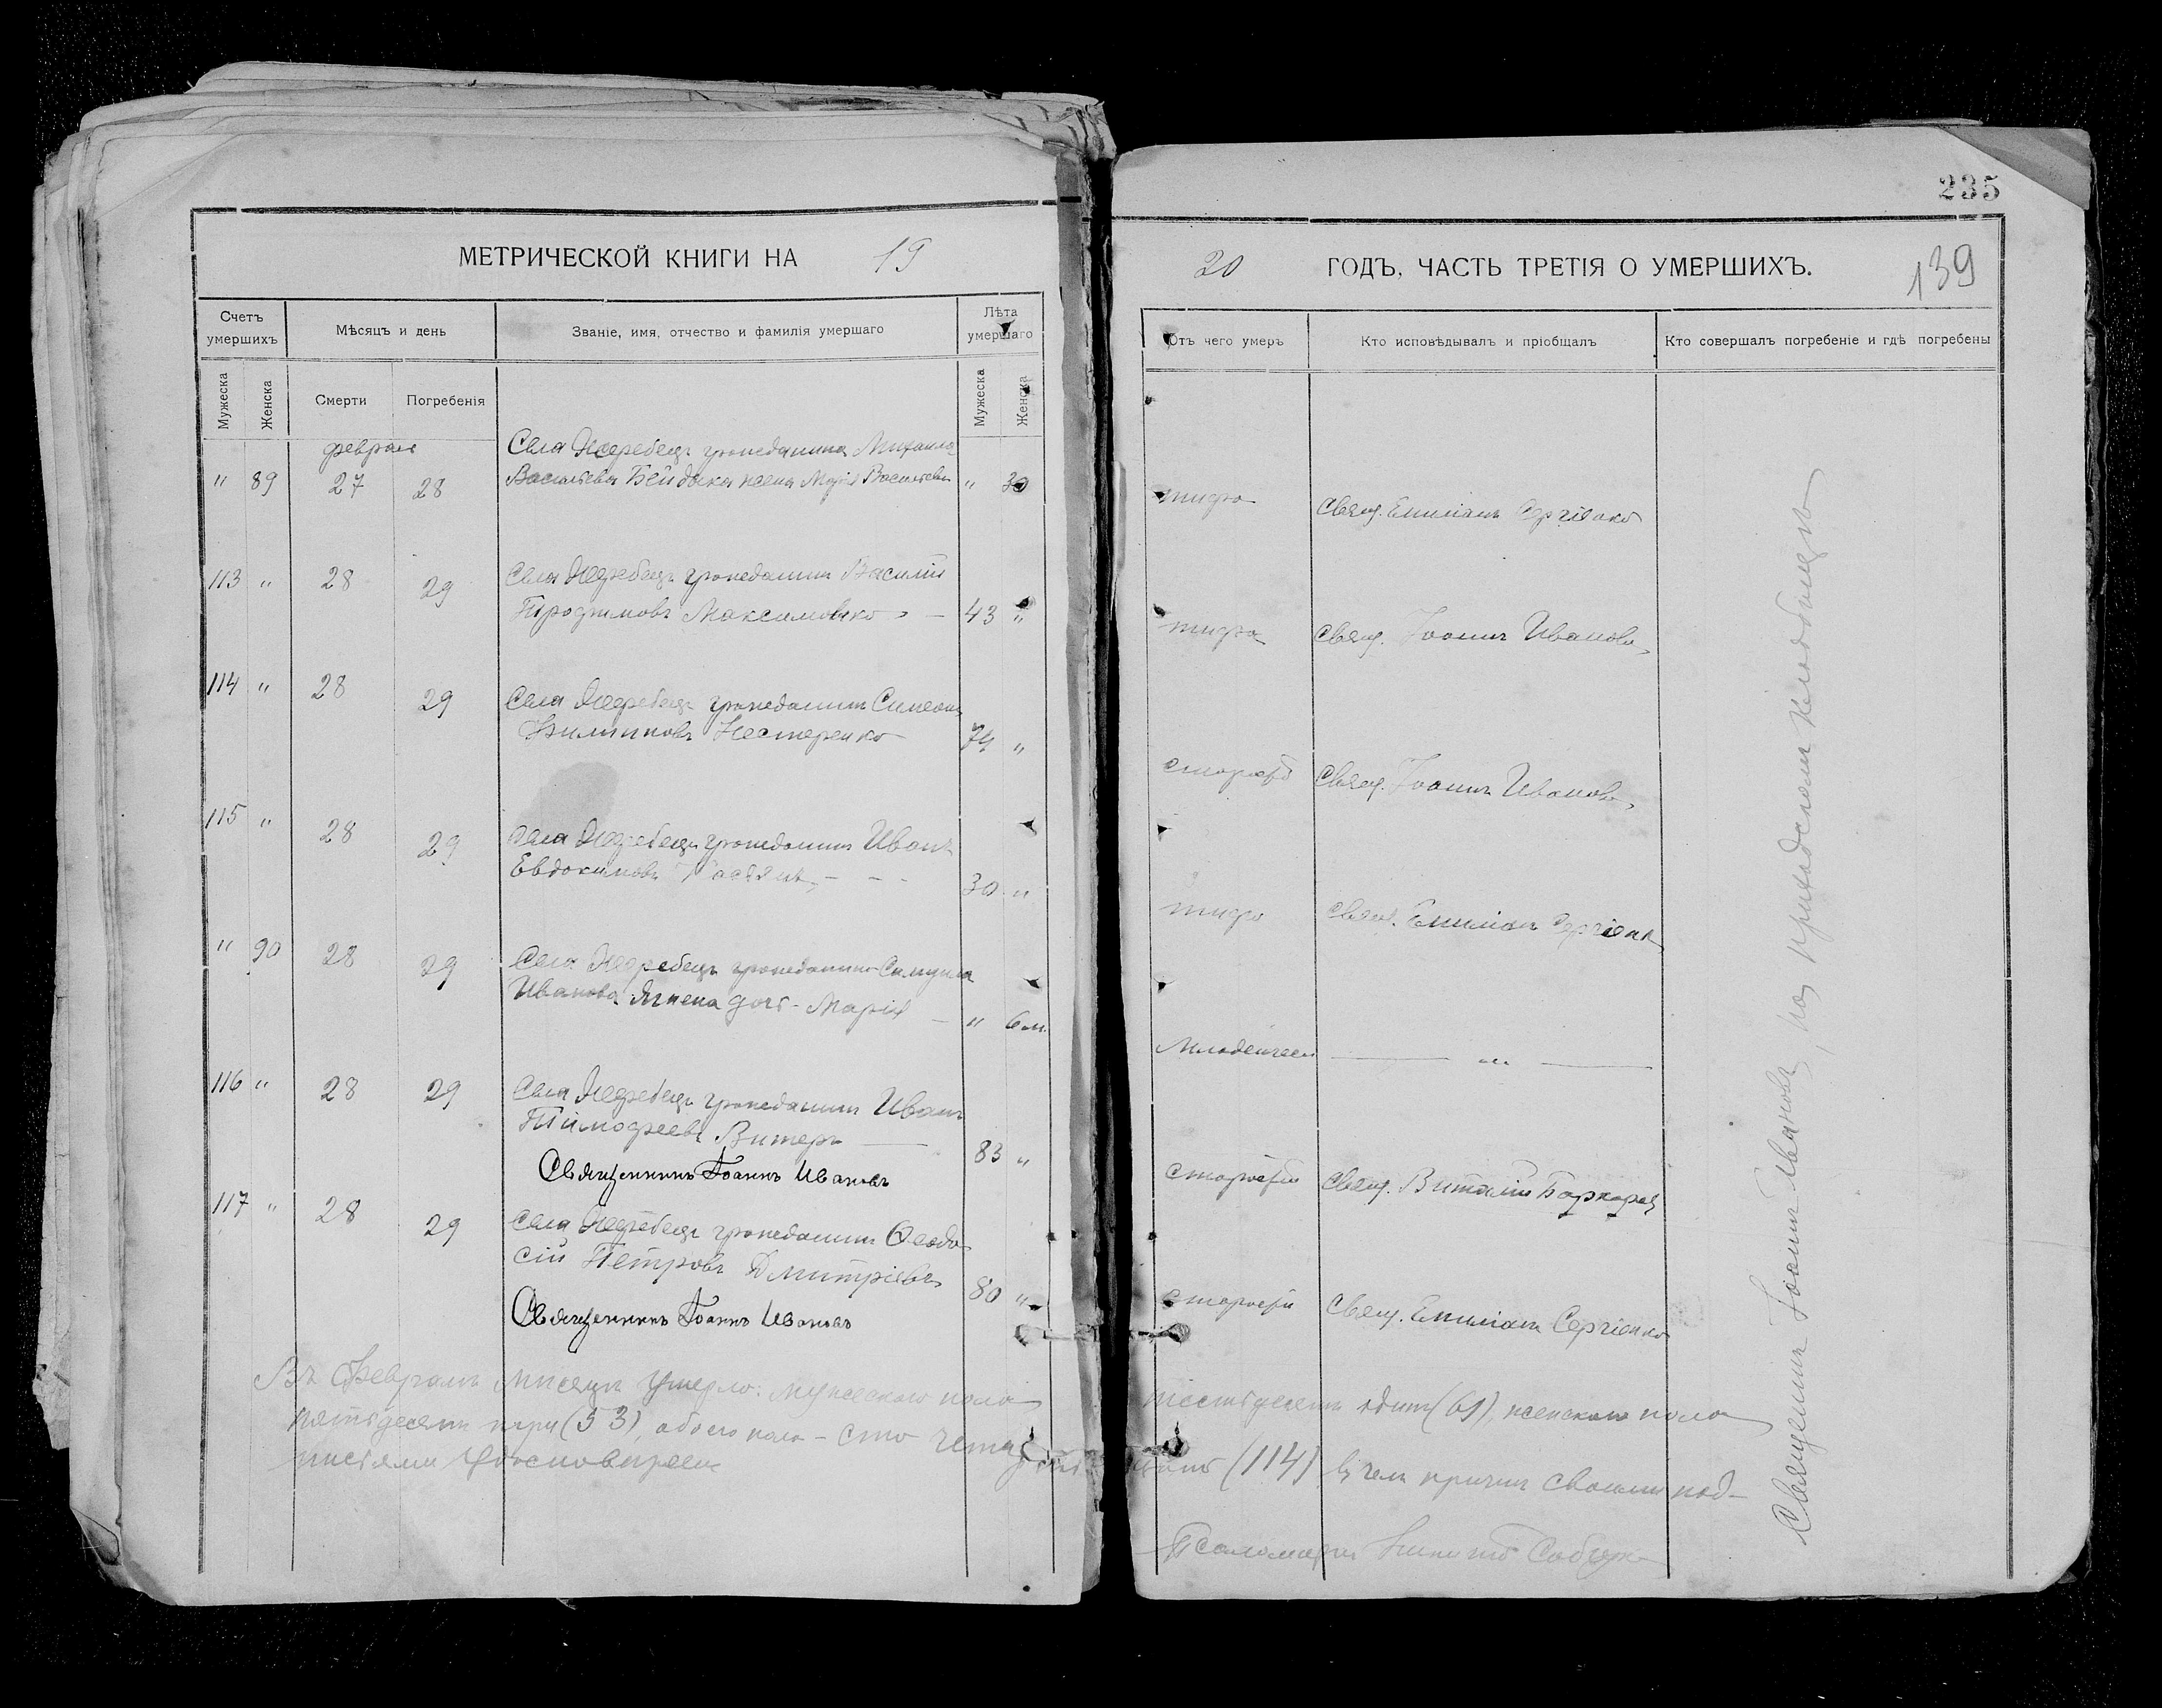 235
139
МЕТРИЧЕСКОЙ КНИГИ НА 19
20 ГОДЪ, ЧАСТЬ ТРЕТІЯ О УМЕРШИХЪ.
Счетъ умершихъ
Мѣсяцъ и день
Званіе, имя, отчество и фамилія умершаго
Лѣта умершаго
Отъ чего умеръ
Кто исповѣдывалъ и пріобщалъ
Кто совершалъ погребеніе и гдѣ погребены
Мужеска
Женска
Смерти
Погребенія
Мужеска
Женска
февраль
Села Жеребецъ гражданина Михаила
" 89 27 28 Васильева Бейдака жена Марія Васильева " 30
тифа
Свящ. Емиліанъ Сергіенко
113 " 28 29 Села Жеребецъ гражданинъ Василій
Трофимовъ Максименко 43 "
тифа
Свящ. Іоаннъ Ивановъ
114 " 28 29 Села Жеребецъ гражданинъ Симеонъ
Филиповъ Нестеренко 74 "
старости
Свящ. Іоаннъ Ивановъ
115 " 28 29 Села Жеребецъ гражданинъ Иванъ
Евдокимовъ 30 "
тифа
Свящ. Емиліанъ Сергіенко
" 90 28 29 Села Жеребецъ гражданина Самуила
Иванова Ягнена дочь - Марія — " 6 м.
Младенчес — " —
116 " 28 29 Села Жеребецъ гражданинъ Иванъ
Тимофеевъ Витеръ — 83 "
старости
Свящ. Виталій
Священникъ Іоаннъ Ивановъ
117 " 28 29 Села Жеребецъ гражданинъ Ѳеодо
сій Петровъ Дмитріевъ 80 "
старости
Свящ. Емиліанъ Сергіенко
Священникъ Іоаннъ Ивановъ
Въ Февралѣ мѣсяцѣ умерло: мужескаго пола шестьдесятъ одинъ (61), женскаго пола
пятьдесятъ три (53), обоего пола - сто четырнадцать (114) въ чемъ причтъ своими под-
писями удостоверяетъ
Псаломщикъ
Священникъ Іоаннъ Ивановъ, на приходскомъ кладбищѣ